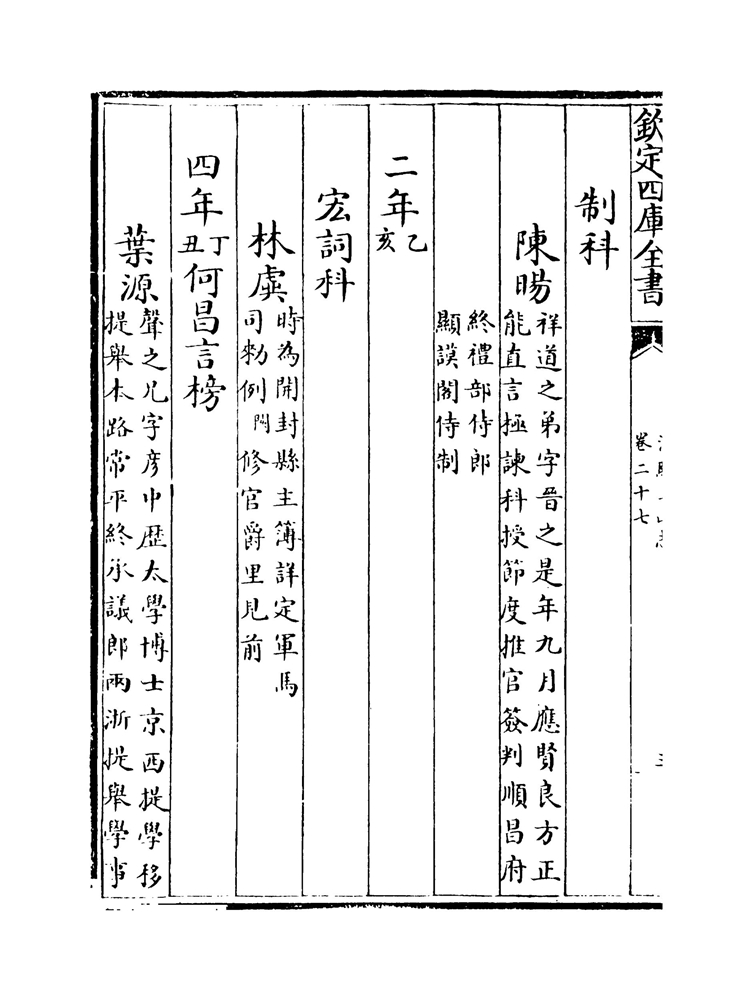 欽定四庫全書
卷二十七
制科
陳暘
祥道之弟字晉之是年九月應賢良方正
能直言極諫科授節度推官簽判順昌府
終禮部侍郎
顯謨閣侍制
二年乙亥
宏詞科
林虞
時為開封縣主簿詳定軍馬
司勑例門修官爵里見前
四年丁丑何昌言榜
葉源
聲之兄字彥中歷太學博士京西提學移
提舉本路常平終承議郎兩浙提舉學事